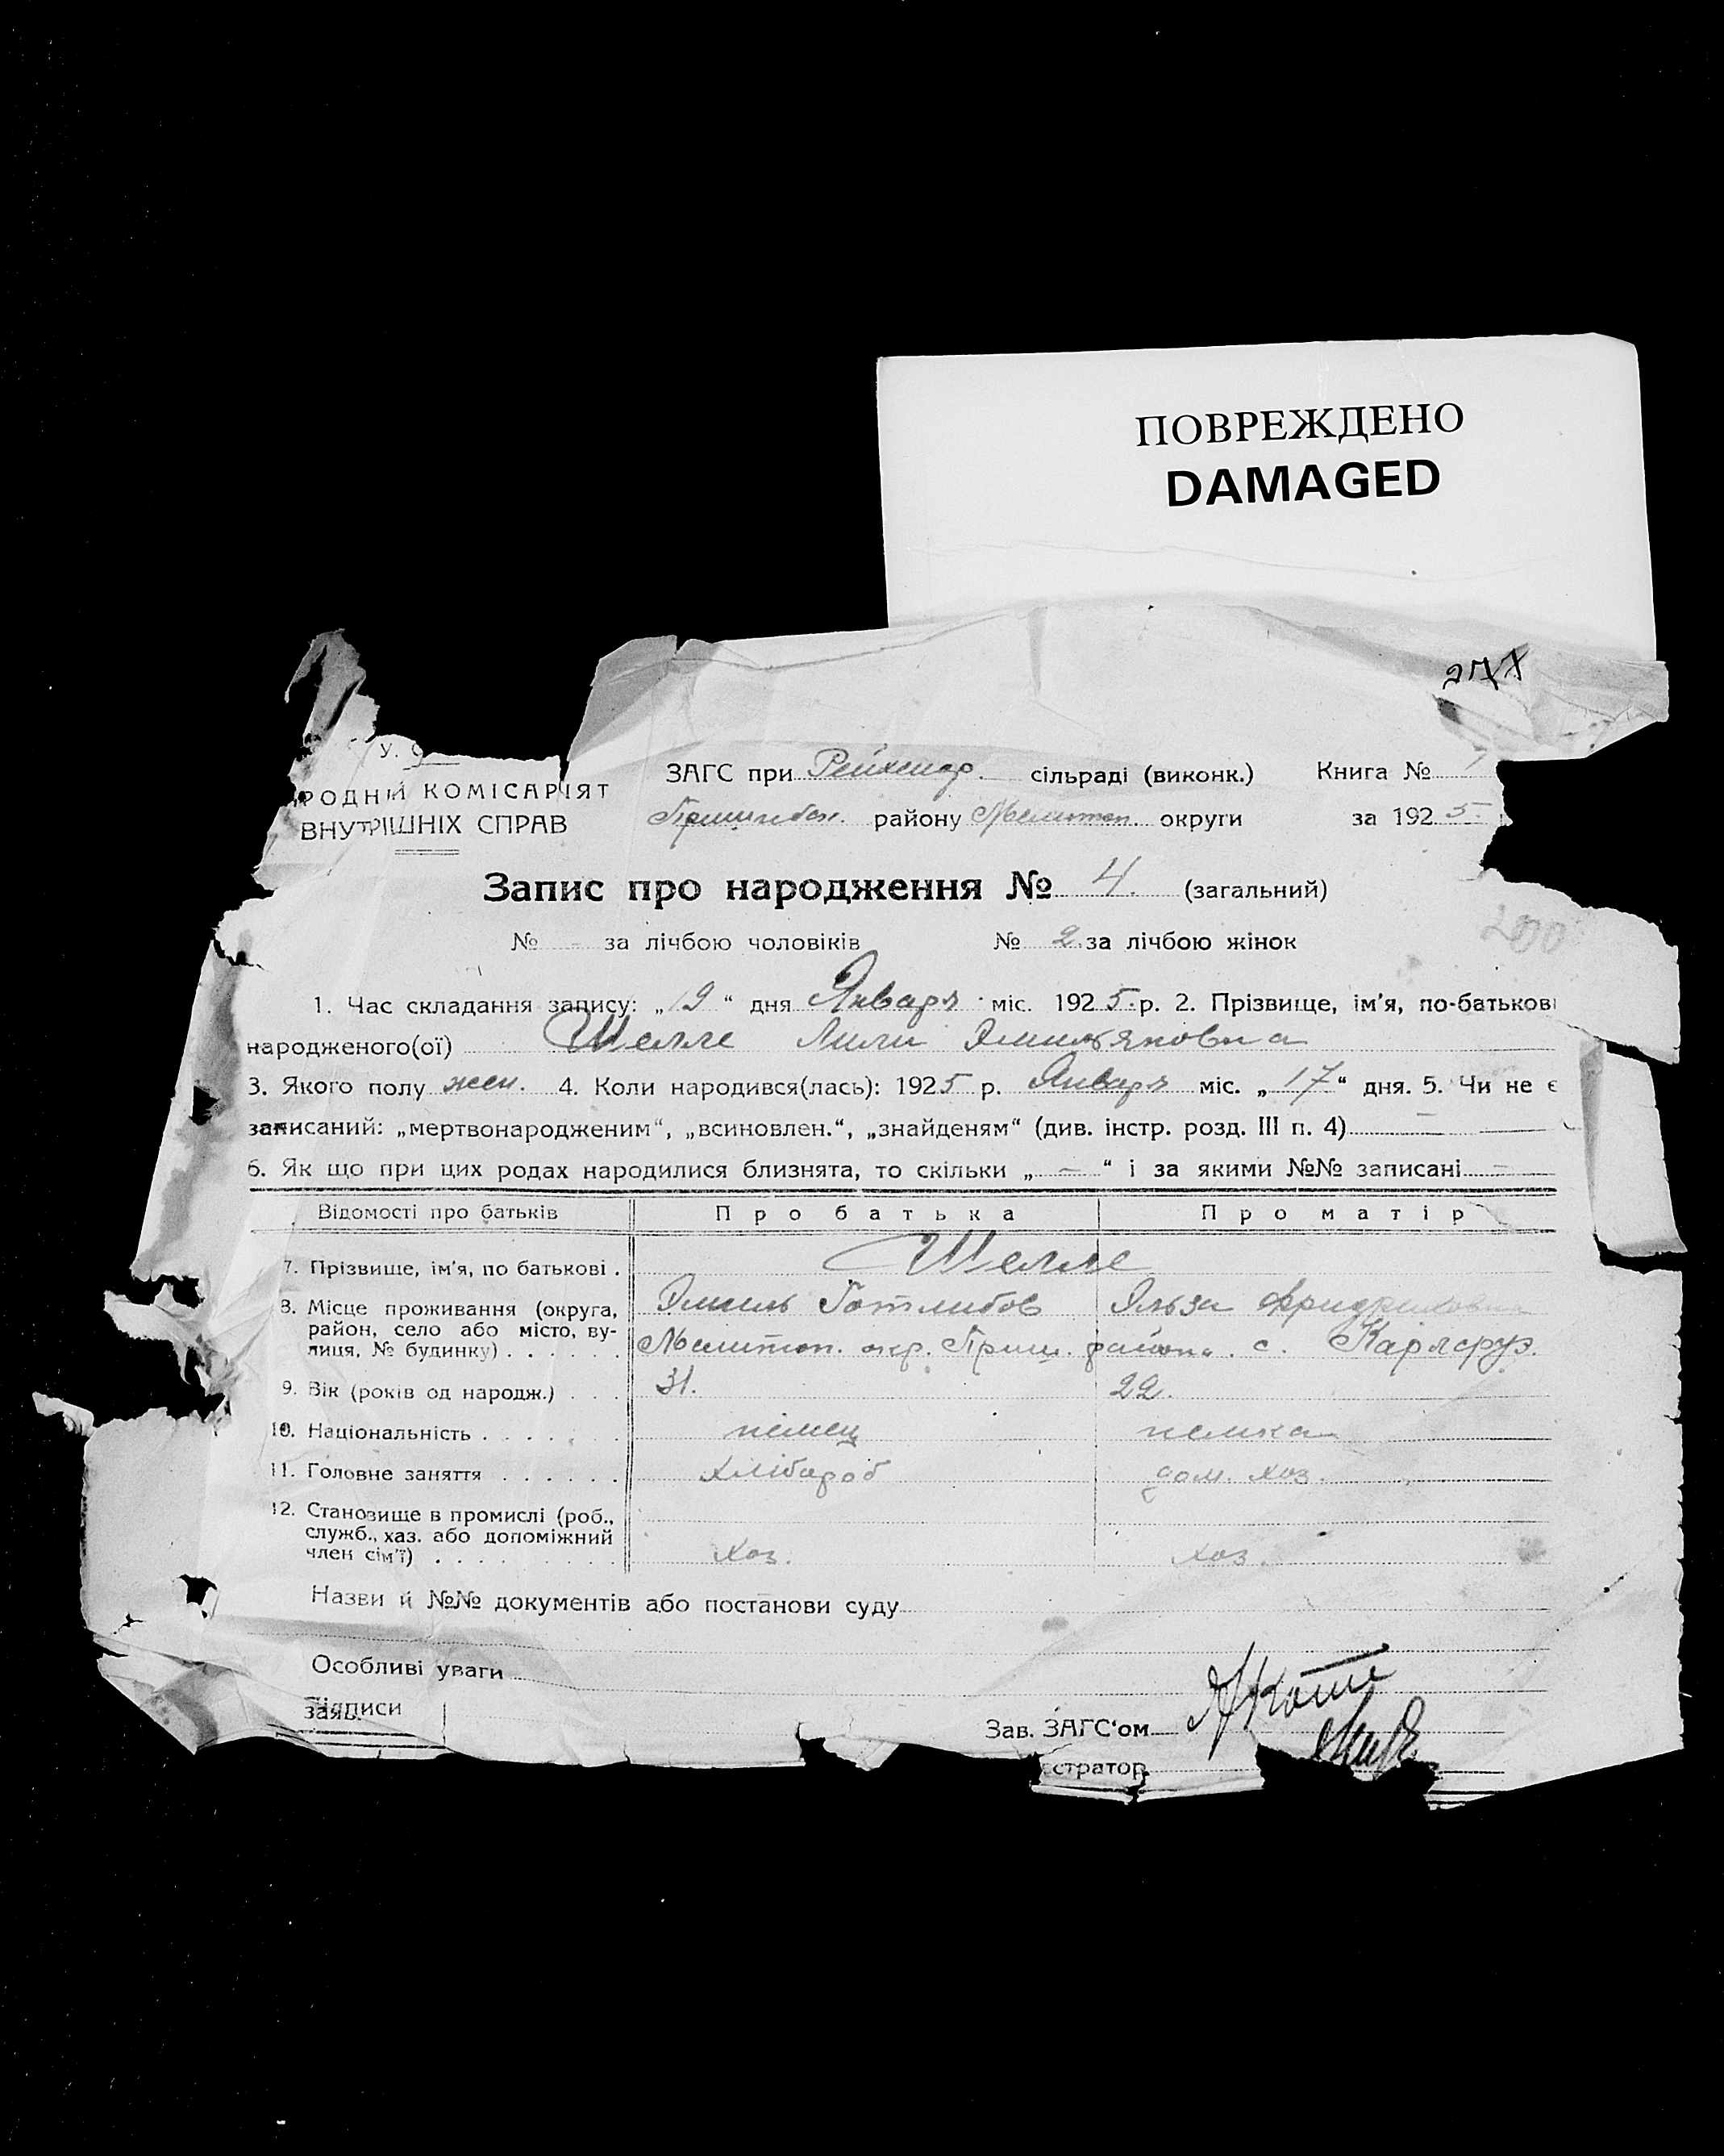 ПОВРЕЖДЕНО
DAMAGED
У. С
РОДНІЙ КОМІСАРІЯТ
ВНУТРІШНІХ СПРАВ
ЗАГС при Рейхенф. сільраді (виконк.) Книга №
Пришибск. району Мелитоп. округи за 1925
Запис про народження № 4. (загальний)
№ - за лічбою чоловіків № 2. за лічбою жінок
1. Час складання запису: „19“ дня Январь міс. 1925 р. 2. Прізвище, ім'я, по-батькові
народженого(ої) Шелле Лили Эмильяновна
3. Якого полу жен. 4. Коли народився(лась): 1925 р. Январь міс. „17“ дня. 5. Чи не є
записаний: „мертвонародженим“, „всиновлен.“, „знайденям“ (див. інстр. розд. III п. 4) —
6. Як що при цих родах народилися близнята, то скільки „ — “ і за якими №№ записані —
Відомості про батьків Про батька Про матір
7. Прізвище, ім'я, по батькові . Шелле
Эмиль Готлибов Эльза Фридриховна
8. Місце проживання (округа,
район, село або місто, ву-
лиця, № будинку) . . . . . . Мелитоп. окр. Приш. района. с. Карлсруэ.
9. Вік (років од народж.) . . . 31. 22.
10. Національність . . . . . . немец немка
11. Головне заняття . . . . . . хлібороб дом. хоз.
12. Становище в промислі (роб.,
служб., хаз. або допоміжний
член сім'ї) . . . . . . . . . хоз. хоз.
Назви й №№ документів або постанови суду
Особливі уваги
Підписи
заяв.
Зав. ЗАГС'ом
стратор